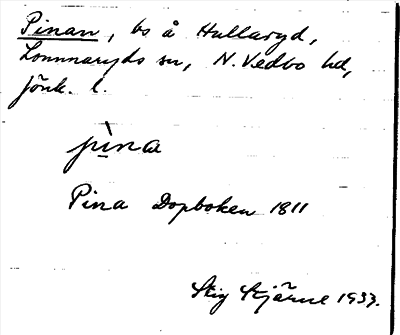 Pinan, bs å Hullaryd,
Lommaryds sn, N. Vedbo hd,
Jönk. l.
pì̱na
Pina Dopboken 1811
Stig Stjärne 1933.